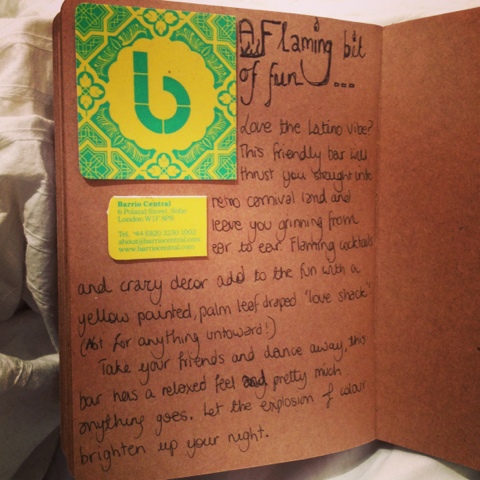 b
A Flaming bit
of fun...
Love the Latino vibe?
This friendly bar will
thrust you straight into
retro carnival land and
leave you grinning from
ear to ear. Flaming cocktails
Barrio Central
6 Poland Street, Soho
London W1F 8PS
and crazy decor add to the fun with a
yellow painted, palm leaf draped "love shack"
(Not for anything untoward!)
Take your friends and dance away, this
bar has a relaxed feel and pretty much
anything goes. Let the explosion of colour
brighten up your night.